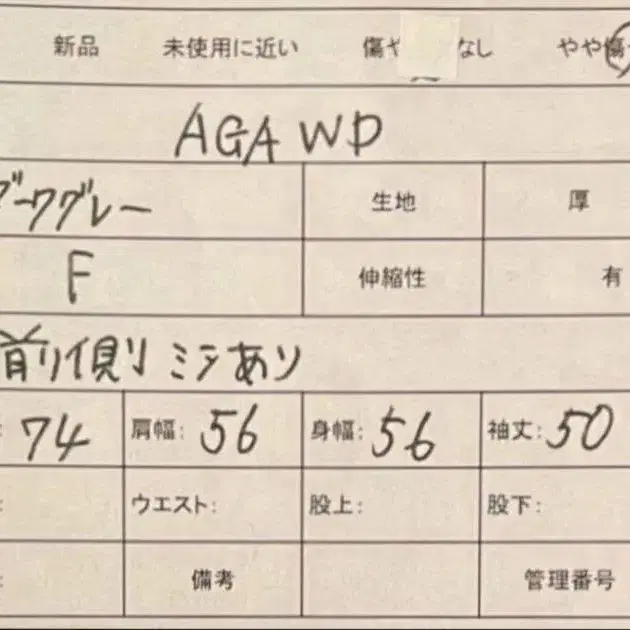 新品 未使用に近い 傷や なし やや傷
AGAWD
ダークグレー 生地 厚
F 伸縮性 有
前側 シミあり
: 74 肩幅: 56 身幅: 56 袖丈: 50
: ウエスト: 股上: 股下:
: 備考 管理番号